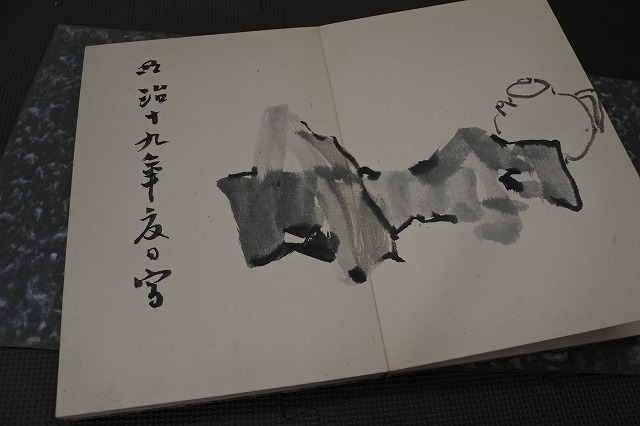 明治十九年夏日写